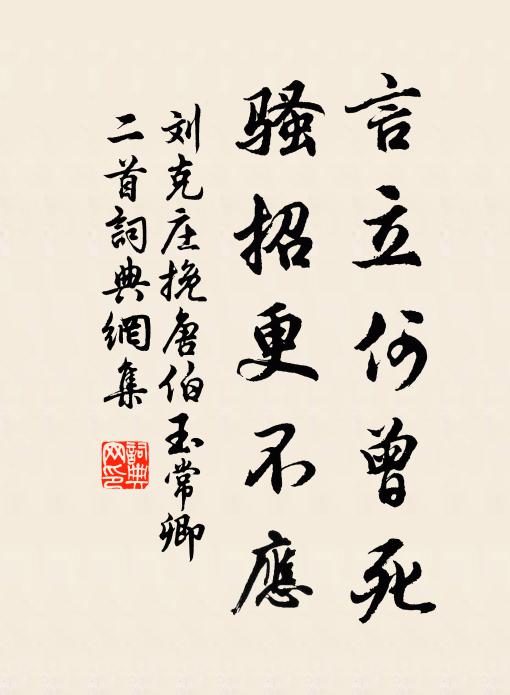 言立何曾死
骚招更不應
刘克庄挽唐伯玉常卿
二首詞典網集
詞典网印